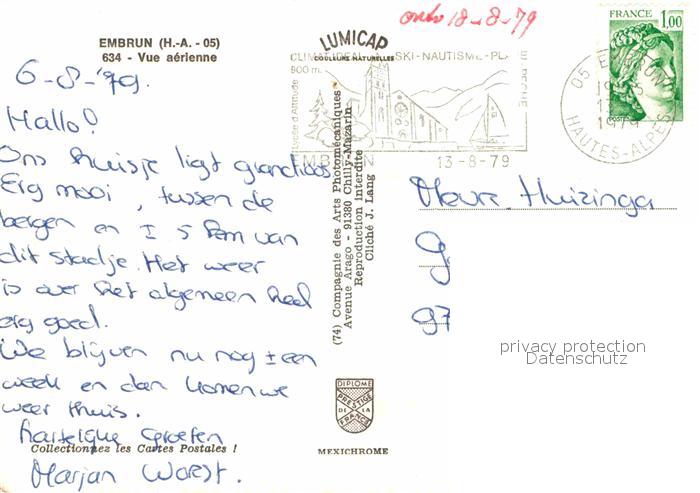 onto 18-8-79
EMBRUN (H.-A. - 05)
634 - Vue aérienne
6-8-'79.
Hallo!
Ons huisje ligt grandioos
Erg mooi, tussen de
bergen en ± 5 km van
dit stadje. Het weer
is over het algemeen heel
erg goed.
We blijven nu nog ± een
week en dan komen we
weer thuis.
hartelijke groeten
Marjan Worst.
Collectionnez les Cartes Postales !
LUMICAP
COULEURS NATURELLES
CLIMAT IDEAL SKI-NAUTISME-PLAGE
900 m. d'Altitude
PECHE
EMBRUN
13-8-79
(74) Compagnie des Arts Photomécaniques
Avenue Arago - 91380 Chilly-Mazarin
Reproduction interdite
Cliché J. Lang
DIPLOME
PRESTIGE
DE LA
FRANCE
MEXICHROME
FRANCE
1,00
POSTES
05 EMBRUN
1979
HAUTES-ALPES
Mevr. Huizinga
G
97
privacy protection
Datenschutz